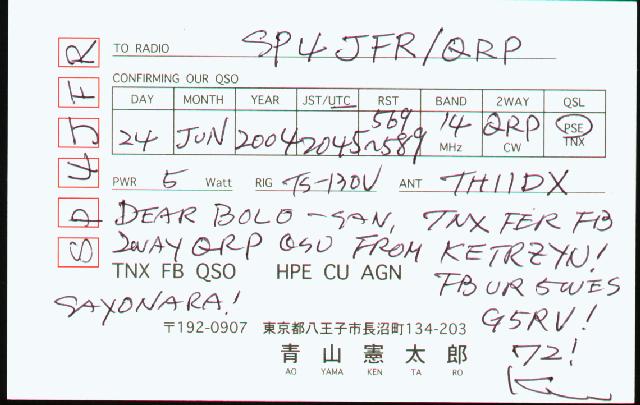 SP4JFR
TO RADIO SP4JFR/QRP
CONFIRMING OUR QSO
DAY MONTH YEAR JST/UTC RST BAND 2WAY QSL
24 JUN 2004 2045 569~589 14 MHz QRP CW PSE TNX
PWR 5 Watt RIG TS-130V ANT TH11DX
DEAR BOLO-SAN, TNX FER FB
2WAY QRP QSO FROM KETRZYN!
TNX FB QSO HPE CU AGN
FB UR 5W ES
SAYONARA! G5RV!
〒192-0907 東京都八王子市長沼町134-203
72!
青山憲太郎
AO YAMA KEN TA RO